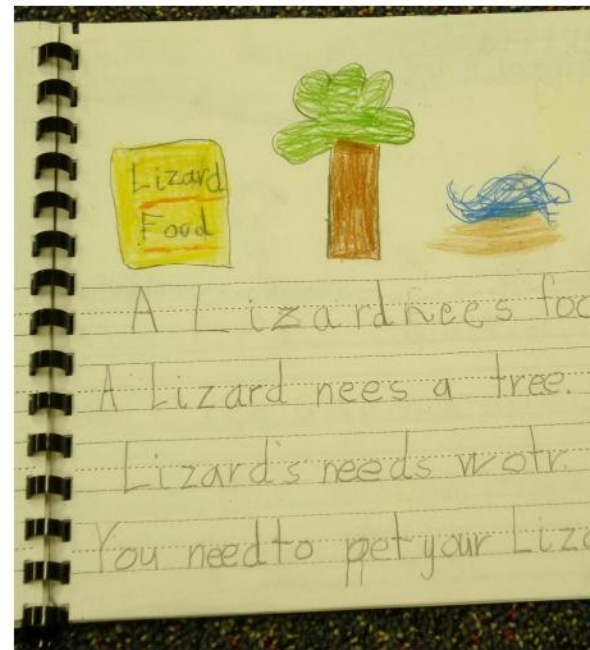 Lizard
Food
A Lizard nees foo
A Lizard nees a tree.
Lizard's needs wotr.
You need to pet your Liza